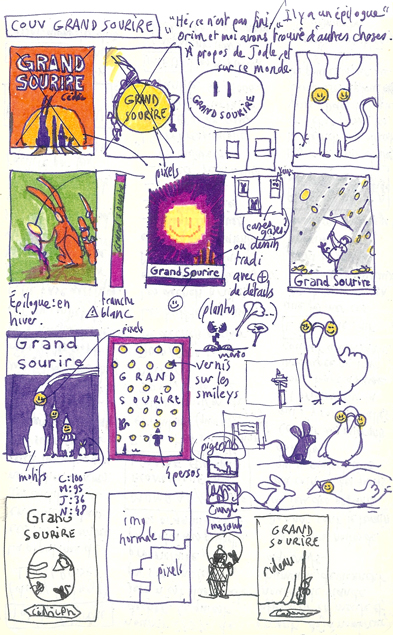 COUV GRAND SOURIRE
"Hé, ce n'est pas fini,
Il y a un épilogue"
Orim et moi avons trouvé d'autres choses.
À propos de Jodle, et
sur ce monde.
GRAND
SOURIRE
GRAND
SOURIRE
GRAND SOURIRE
pixels
Grand Sourire
cases grises
ou dessin
tradi
avec ⊕
de détails
Grand Sourire
Épilogue: en
hiver.
tranche
blanc
pixels
(plantes)
Grand
sourire
GRAND
SOURIRE
vernis
sur les
smileys
motifs
4 persos
pigeons
C:100
M:95
J:36
N:48
Grand
SOURIRE
img
normale
pixels
GRAND
SOURIRE
rideau